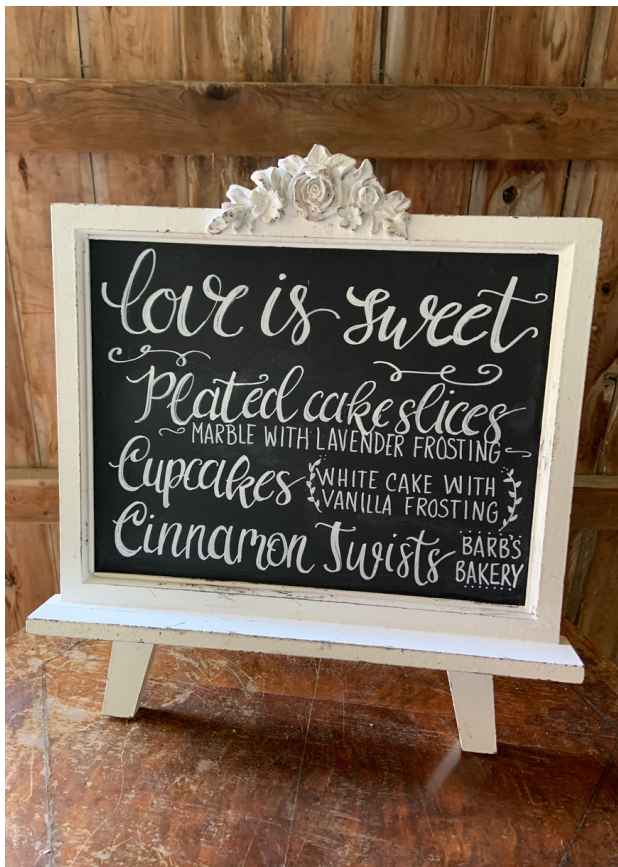 love is sweet
Plated cake slices
MARBLE WITH LAVENDER FROSTING
Cupcakes
WHITE CAKE WITH
VANILLA FROSTING
Cinnamon Twists
BARB'S
BAKERY